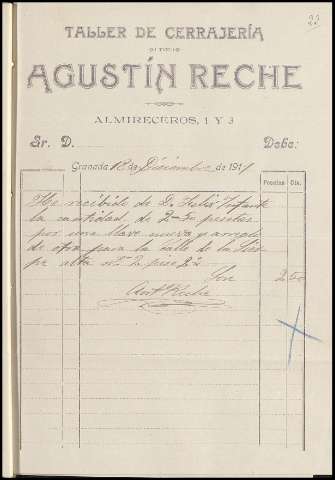 22
TALLER DE CERRAJERÍA
DE
AGUSTÍN RECHE
ALMIRECEROS, 1 Y 3
Sr. D. Debe:
Granada 18 de Diciembre de 191
Pesetas Cts.
He recibido de D. Felix Infante
la cantidad de 2-50 pesetas
por una llave nueva y arreglo
de otra para la calle de la
pe alta nº 2 piso 2º
Son 2 50
Reche